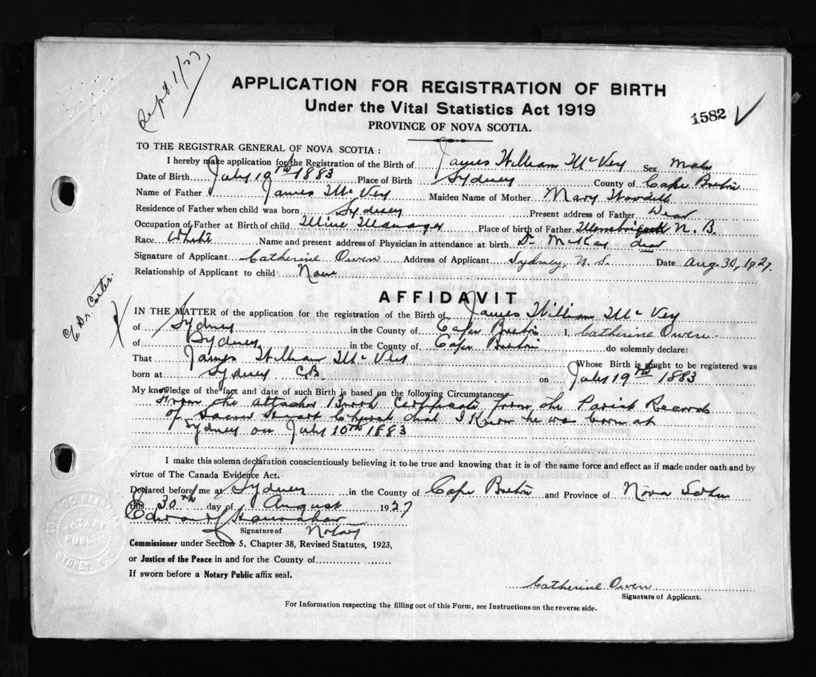 Sept. 1/27
APPLICATION FOR REGISTRATION OF BIRTH
Under the Vital Statistics Act 1919
1582
PROVINCE OF NOVA SCOTIA.
TO THE REGISTRAR GENERAL OF NOVA SCOTIA :
I hereby make application for the Registration of the Birth of James William McVey Sex Male
Date of Birth July 19th 1883 Place of Birth Sydney County of Cape Breton
Name of Father James McVey Maiden Name of Mother Mary
Residence of Father when child was born Sydney Present address of Father Dead
Occupation of Father at Birth of child Mine Manager Place of birth of Father N.B.
Race White Name and present address of Physician in attendance at birth Dr McKay dead
Signature of Applicant Catherine Owen Address of Applicant Sydney, N.S. Date Aug. 30, 1927.
Relationship of Applicant to child None
c/o Dr. Carter.
AFFIDAVIT
IN THE MATTER of the application for the registration of the Birth of James William McVey
of Sydney in the County of Cape Breton I, Catherine Owen
of Sydney in the County of Cape Breton do solemnly declare:
That James William McVey Whose Birth is sought to be registered was
born at Sydney C.B. on July 19th 1883
My knowledge of the fact and date of such Birth is based on the following Circumstances
From the attached Birth Certificate from the Parish Records
of Sacred Heart Church that I know he was born at
Sydney on July 10th 1883
I make this solemn declaration conscientiously believing it to be true and knowing that it is of the same force and effect as if made under oath and by
virtue of The Canada Evidence Act.
Declared before me at Sydney in the County of Cape Breton and Province of Nova Scotia
this 30th day of August 1927
Signature of Notary
Commissioner under Section 5, Chapter 38, Revised Statutes, 1923,
or Justice of the Peace in and for the County of
If sworn before a Notary Public affix seal.
Catherine Owen
Signature of Applicant.
For Information respecting the filling out of this Form, see Instructions on the reverse side.